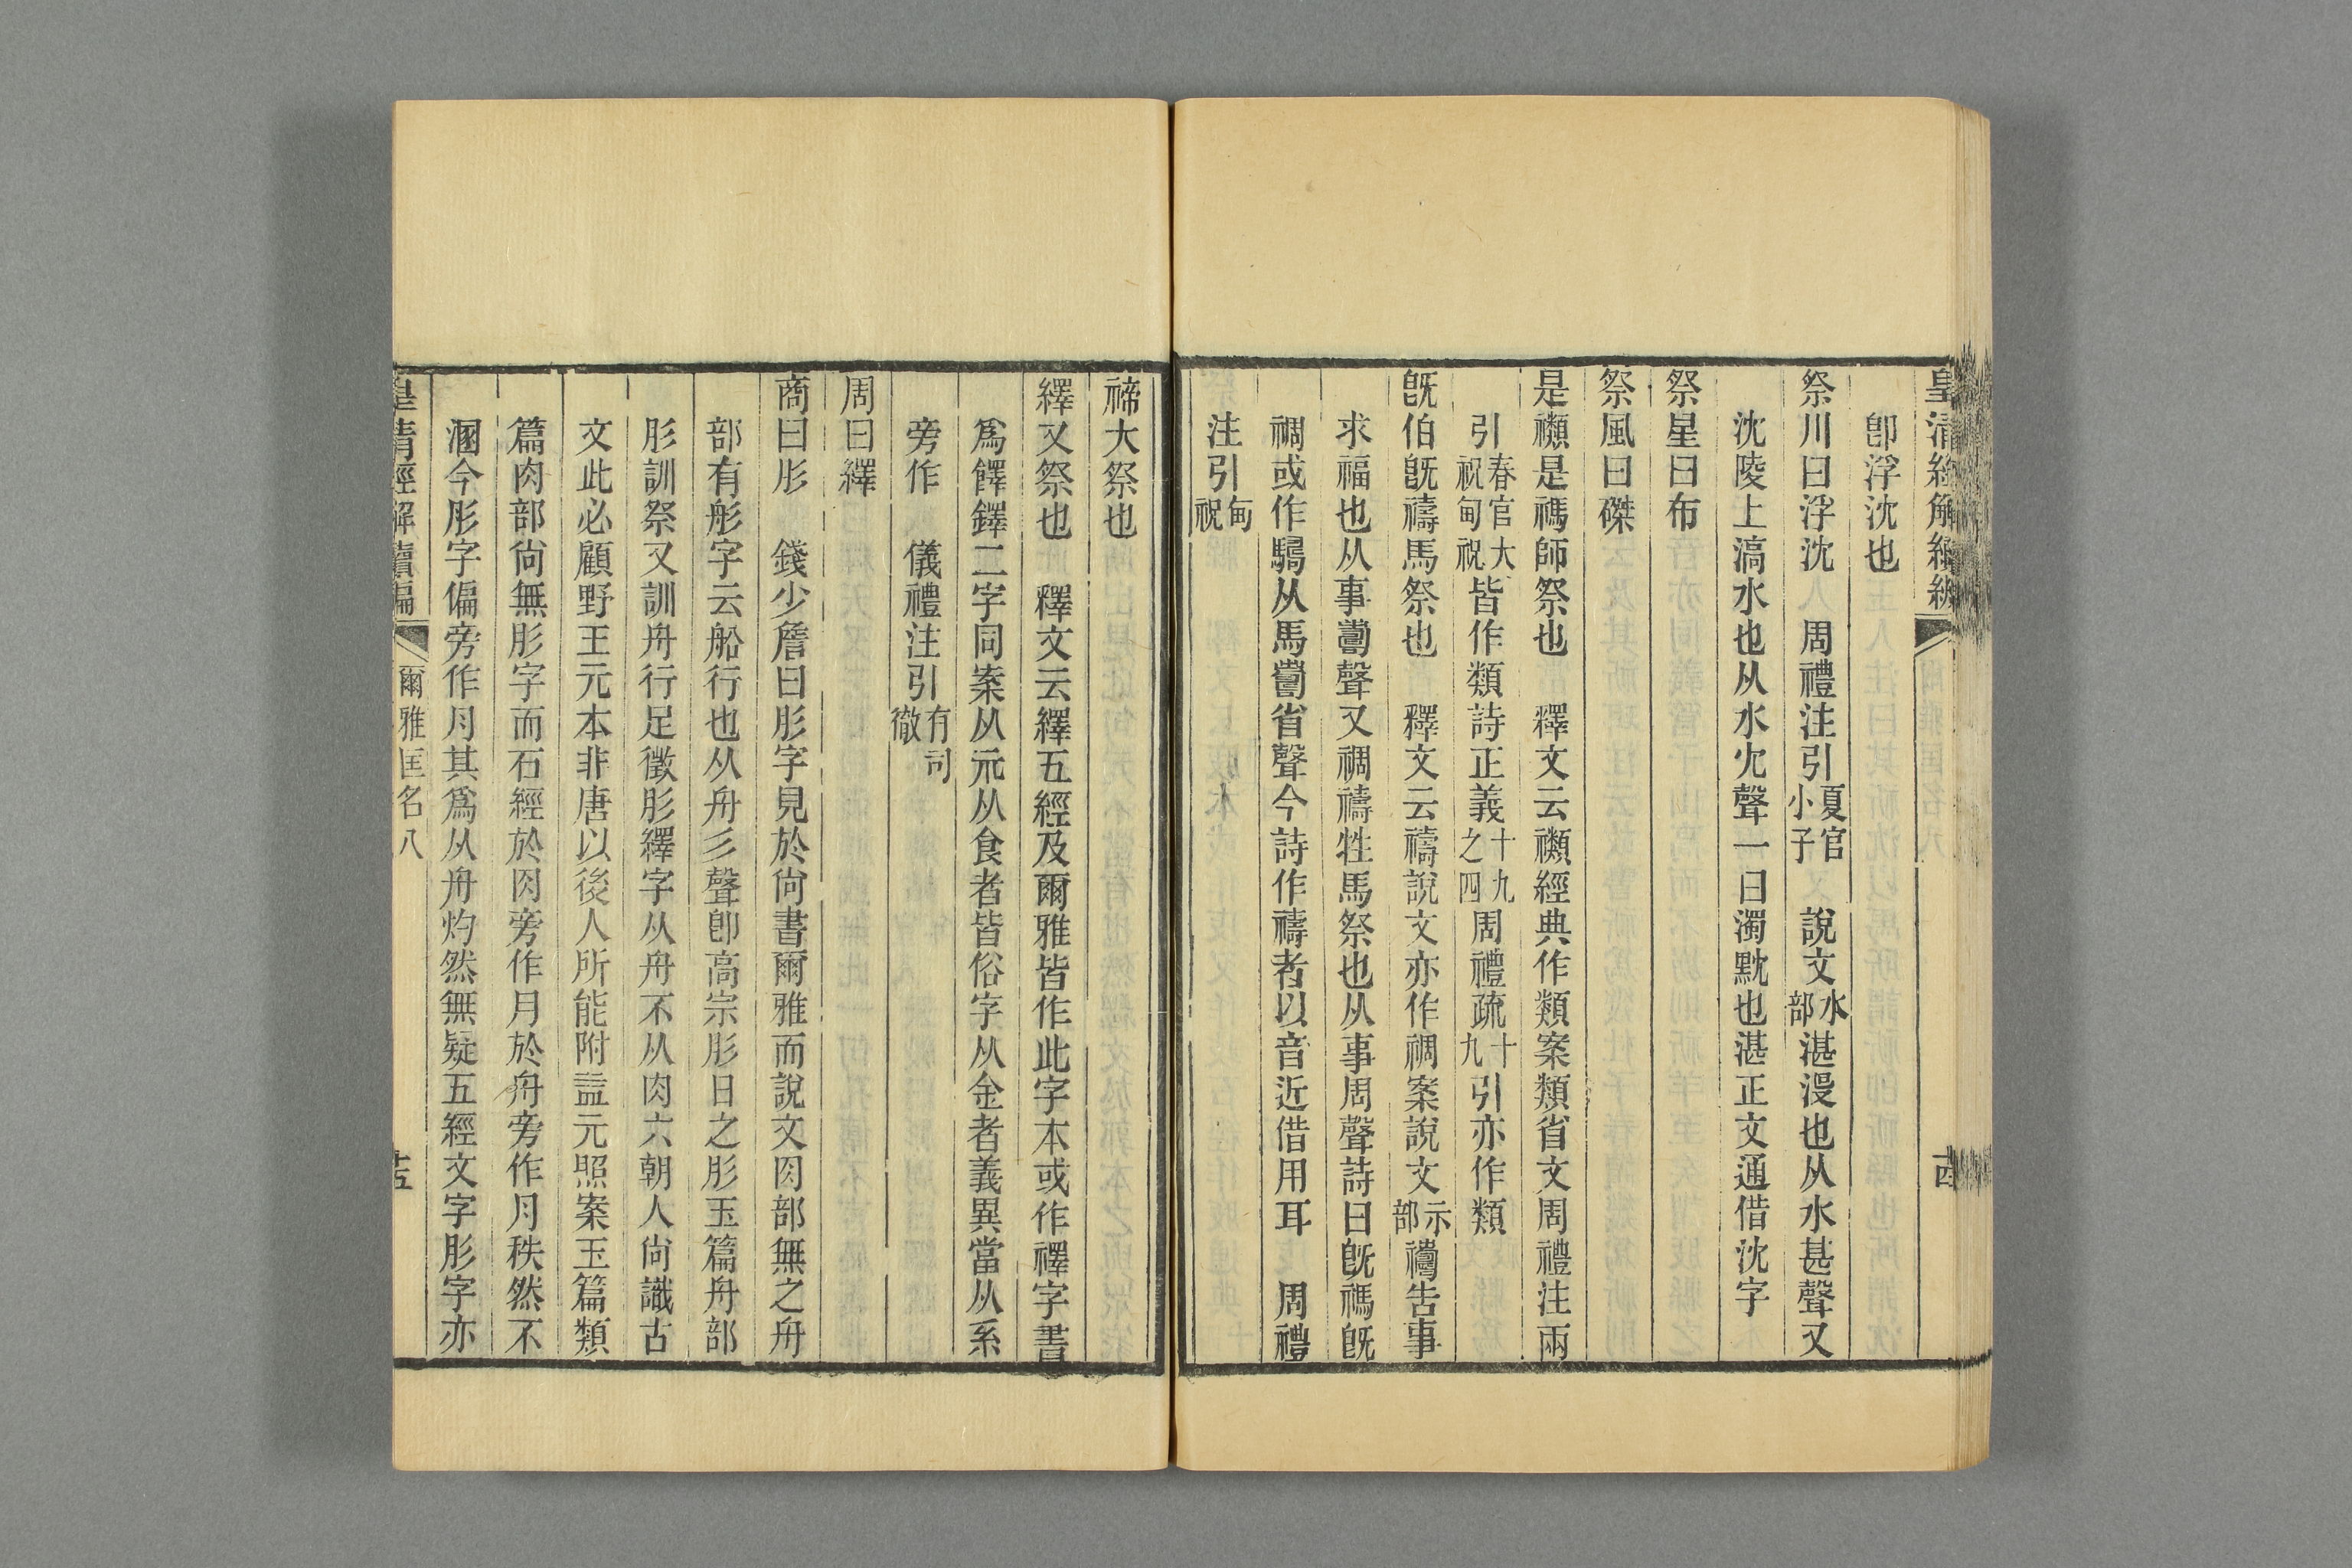 皇清經解續編
十四
卽浮沈也
祭川曰浮沈 周禮注引夏官小子 說文水部湛沒也从水甚聲又
沈陵上滈水也从水冘聲一曰濁黕也湛正文通借沈字
祭星曰布
祭風曰磔
是禷是禡師祭也 釋文云禷經典作類案類省文周禮注兩
引春官大祝甸祝皆作類詩正義十九之四周禮疏十九引亦作類
旣伯旣禱馬祭也 釋文云禱說文亦作禂案說文示部禱告事
求福也从事𠷎聲又禂禱牲馬祭也从事周聲詩曰旣禡旣
禂或作䮻从馬𠷎省聲今詩作禱者以音近借用耳 周禮
注引甸祝
禘大祭也
繹又祭也 釋文云繹五經及爾雅皆作此字本或作禪字書
爲饆鐸二字同案从示从食者皆俗字从金者義異當从糸
旁作 儀禮注引有司徹
周曰繹
商曰肜 錢少詹曰肜字見於尙書爾雅而說文肉部無之舟
部有彤字云船行也从舟彡聲卽高宗肜日之肜玉篇舟部
肜訓祭又訓舟行足徵肜繹字从舟不从肉六朝人尙識古
文此必顧野王元本非唐以後人所能附益元照案玉篇類
篇肉部尙無肜字而石經於肉旁作月於舟旁作⺝秩然不
溷今肜字偏旁作⺝其爲从舟灼然無疑五經文字肜字亦
皇清經解續編
爾雅匡名八
十五